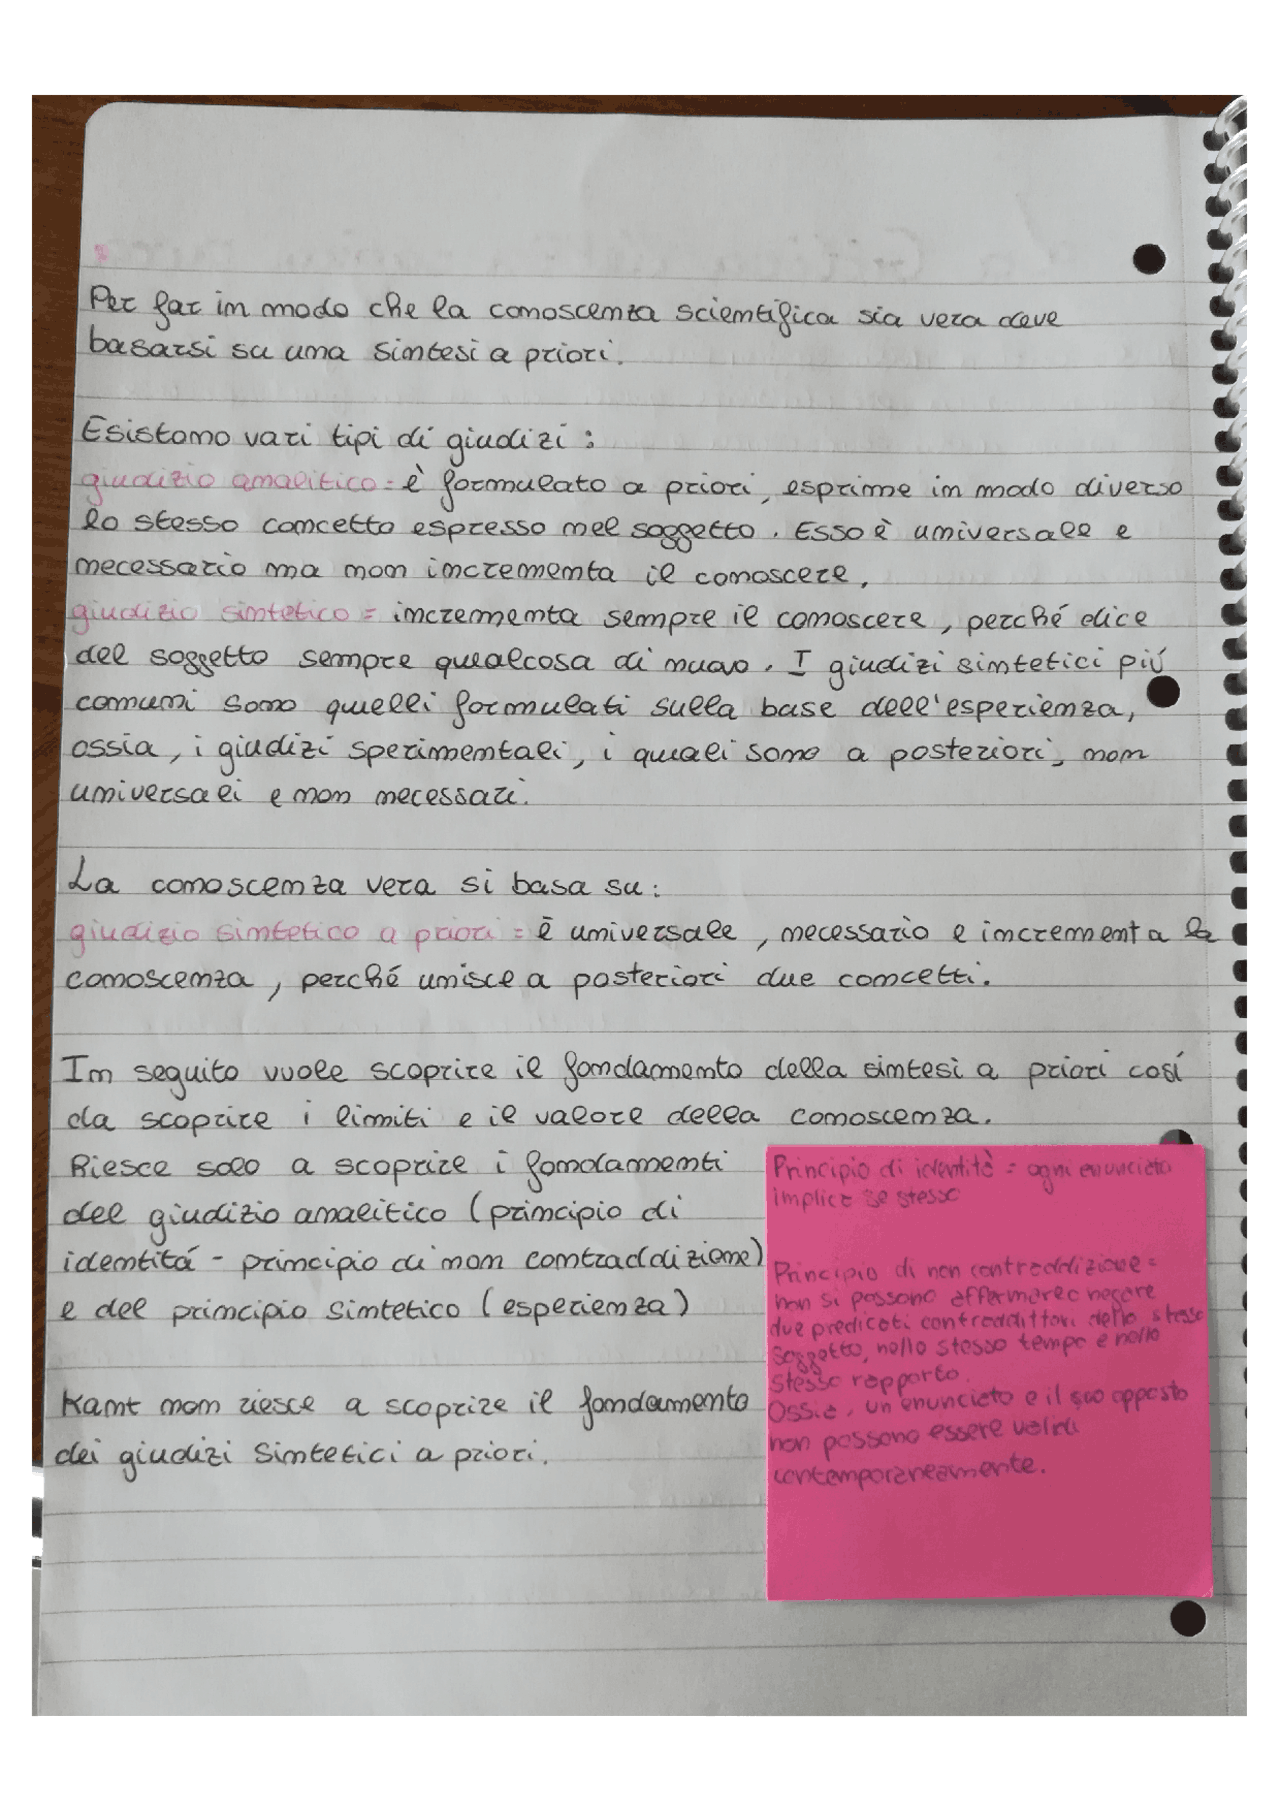 Per far in modo che la conoscenza scientifica sia vera deve
basarsi su una sintesi a priori.
Esistono vari tipi di giudizi:
giudizio analitico = è formulato a priori, esprime in modo diverso
lo stesso concetto espresso nel soggetto. Esso è universale e
necessario ma non incrementa il conoscere,
giudizio sintetico = incrementa sempre il conoscere, perché dice
del soggetto sempre qualcosa di nuovo. I giudizi sintetici piú
comuni sono quelli formulati sulla base dell'esperienza,
ossia, i giudizi sperimentali, i quali sono a posteriori, non
universali e non necessari.
La conoscenza vera si basa su:
giudizio sintetico a priori = è universale, necessario e incrementa la
conoscenza, perché unisce a posteriori due concetti.
In seguito vuole scoprire il fondamento della sintesi a priori cosí
da scoprire i limiti e il valore della conoscenza.
Riesce solo a scoprire i fondamenti
del giudizio analitico (principio di
identitá - principio di non contraddizione)
e del principio sintetico (esperienza)
Kant non riesce a scoprire il fondamento
dei giudizi sintetici a priori.
Principio di identità = ogni enunciato
implica se stesso
Principio di non contraddizione =
non si possono affermare o negare
due predicati contraddittori dello stesso
soggetto, nello stesso tempo e nello
stesso rapporto.
Ossia, un enunciato e il suo opposto
non possono essere validi
contemporaneamente.